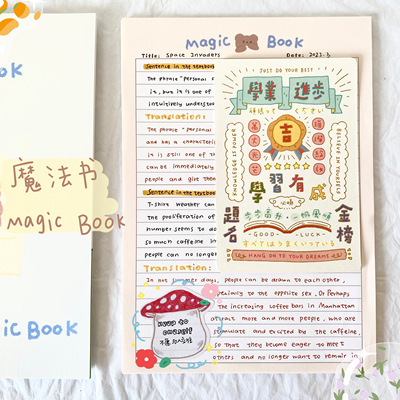 Magic Book
Title: Space Invaders Date: 2023.3
Sentence in the textbook
The phrase "personal s
is, but it is one of
intuitively understoo
Translation:
The phrase "personal
and has a characteris
it is still one of th
can be immediately
people and give them
Sentence in the textbook
T-shirt weather can
the proliferation of
number seems to do
so much caffeine in
people can no longer
Translation:
In hot summer days, people can be drawn to each other,
especially to the opposite sex. Or Perhaps
the increasing coffee bars in Manhattan
attract more and more people, who are
stimulate and excited by the caffeine,
so that they become eager to meet
others and no longer want to remain in
JUST DO YOUR BEST
學業 進步
頑張って ください
吉
KNOWLEDGE IS POWER
BELIEVE IN YOURSELF
學習有成
必勝
題名
金榜
GOOD LUCK
すべてはうまくいっている
HANG ON TO YOUR DREAMS
keep to
oneself
魔法书
Magic Book
ook
ic Book